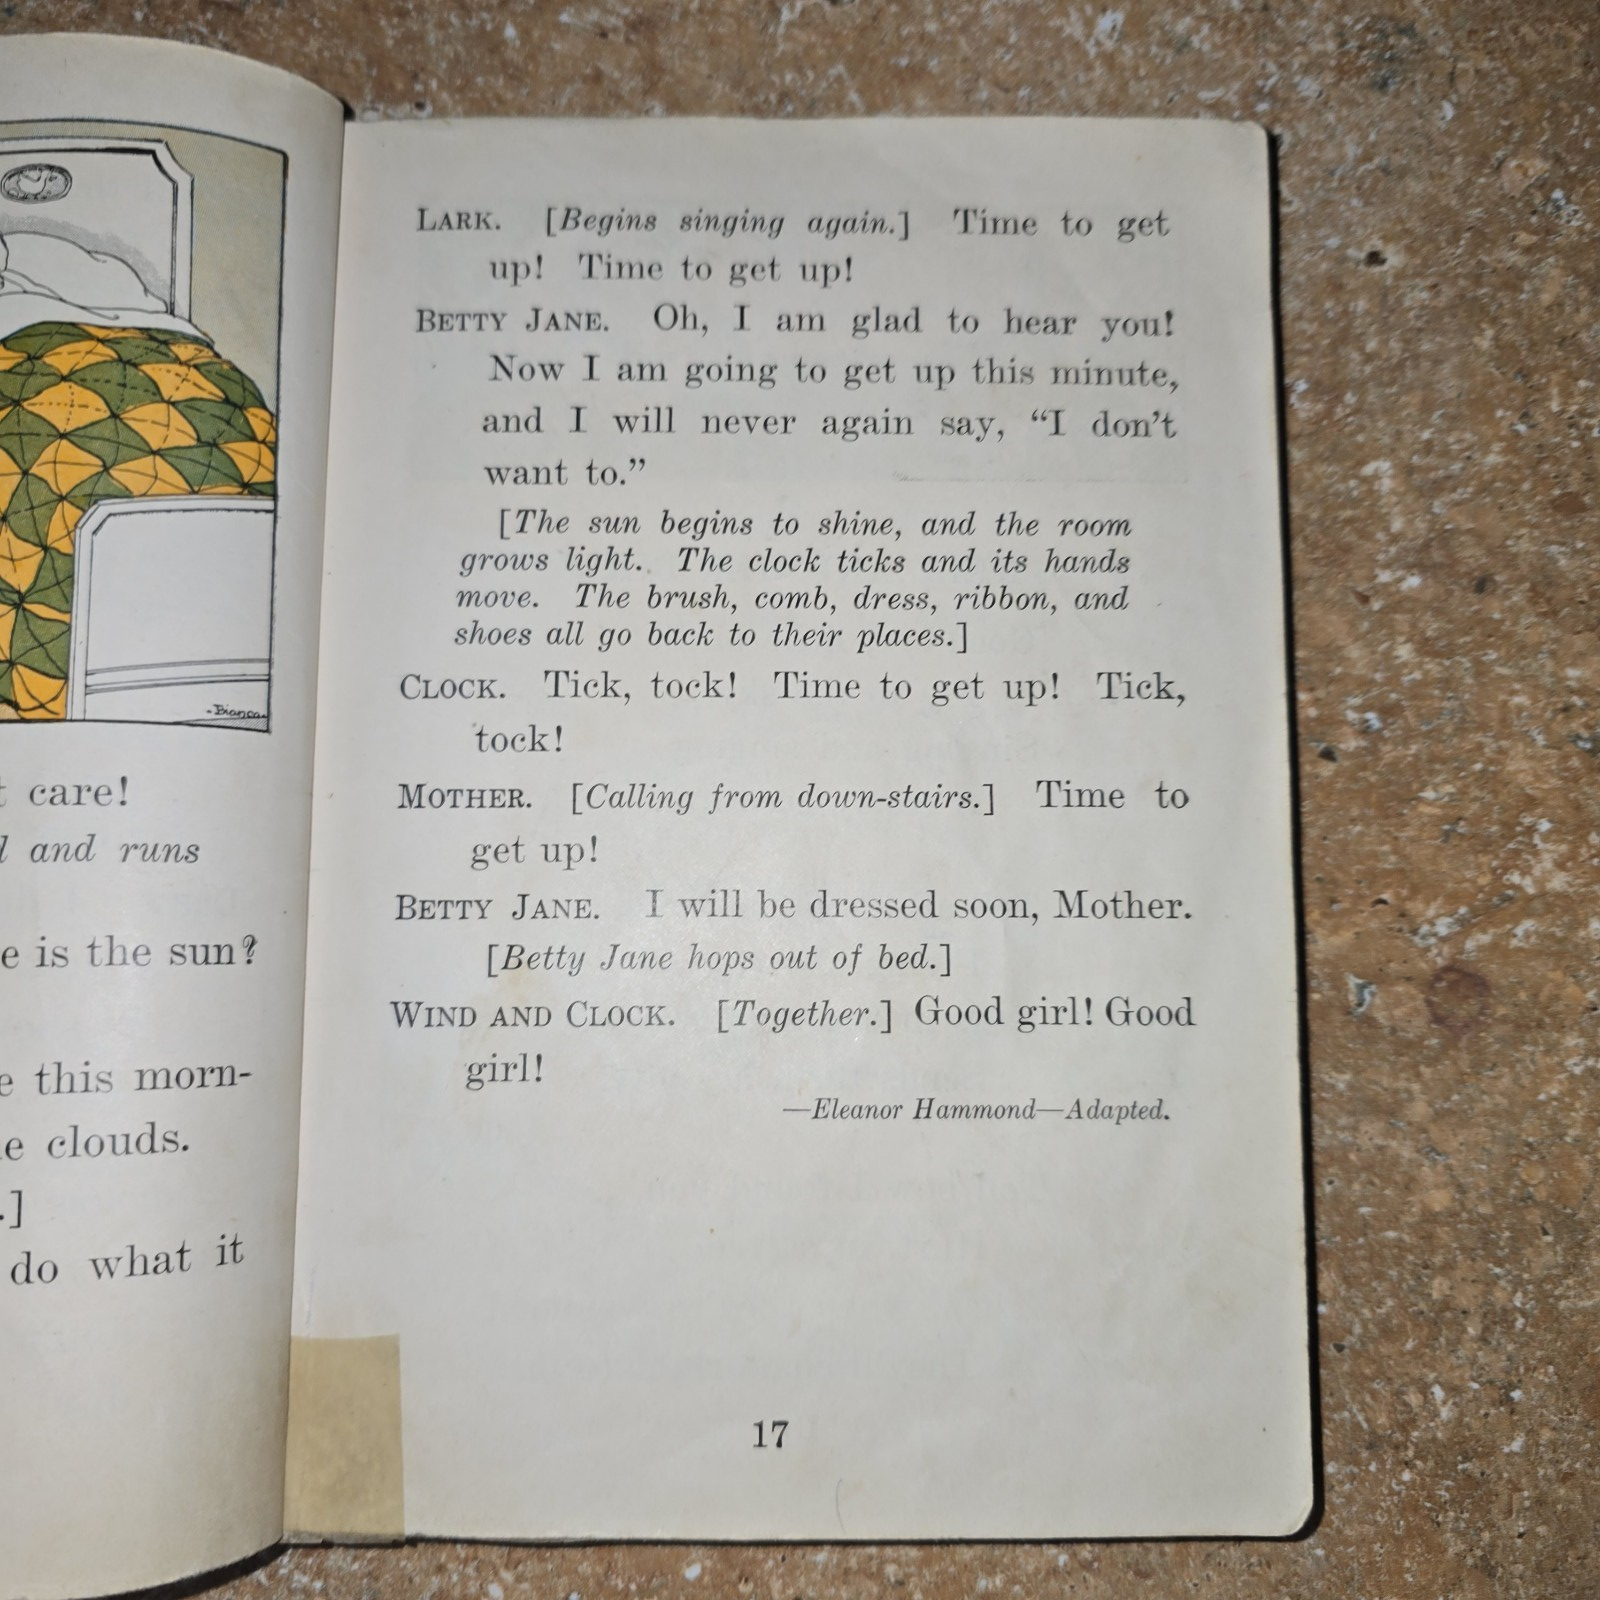 -Bianca-
t care!
and runs
e is the sun?
e this morn-
e clouds.
.]
do what it
LARK. [Begins singing again.] Time to get
up! Time to get up!
BETTY JANE. Oh, I am glad to hear you!
Now I am going to get up this minute,
and I will never again say, “I don’t
want to.”
[The sun begins to shine, and the room
grows light. The clock ticks and its hands
move. The brush, comb, dress, ribbon, and
shoes all go back to their places.]
CLOCK. Tick, tock! Time to get up! Tick,
tock!
MOTHER. [Calling from down-stairs.] Time to
get up!
BETTY JANE. I will be dressed soon, Mother.
[Betty Jane hops out of bed.]
WIND AND CLOCK. [Together.] Good girl! Good
girl!
—Eleanor Hammond—Adapted.
17